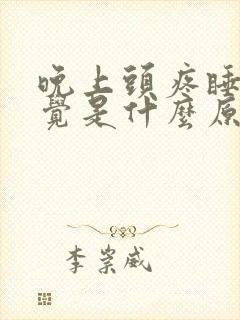 晚上頭疼睡
覺是什麼原
李崇威